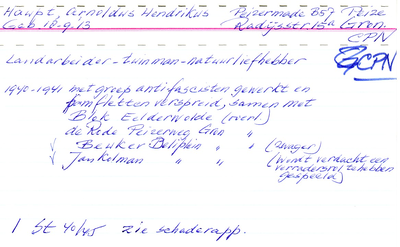 Haupt, Arnoldus Hendrikus Peizermade B57 Peize
Geb. 18-9-'13 Radijsstr. 15a Gron.
CPN
Landarbeider - tuinman - natuurliefhebber
CPN
1940-1941 met groep antifascisten gewerkt en
pamfletten verspreid, samen met
Blok Eelderwolde (verl.)
de Rede Peizerweg Gron "
Beuker Deliplein " " (zwager)
Jan Kolman " " " (wordt verdacht een
verradersrol te hebben
gespeeld)
1 St 40/45 zie schaderapp.